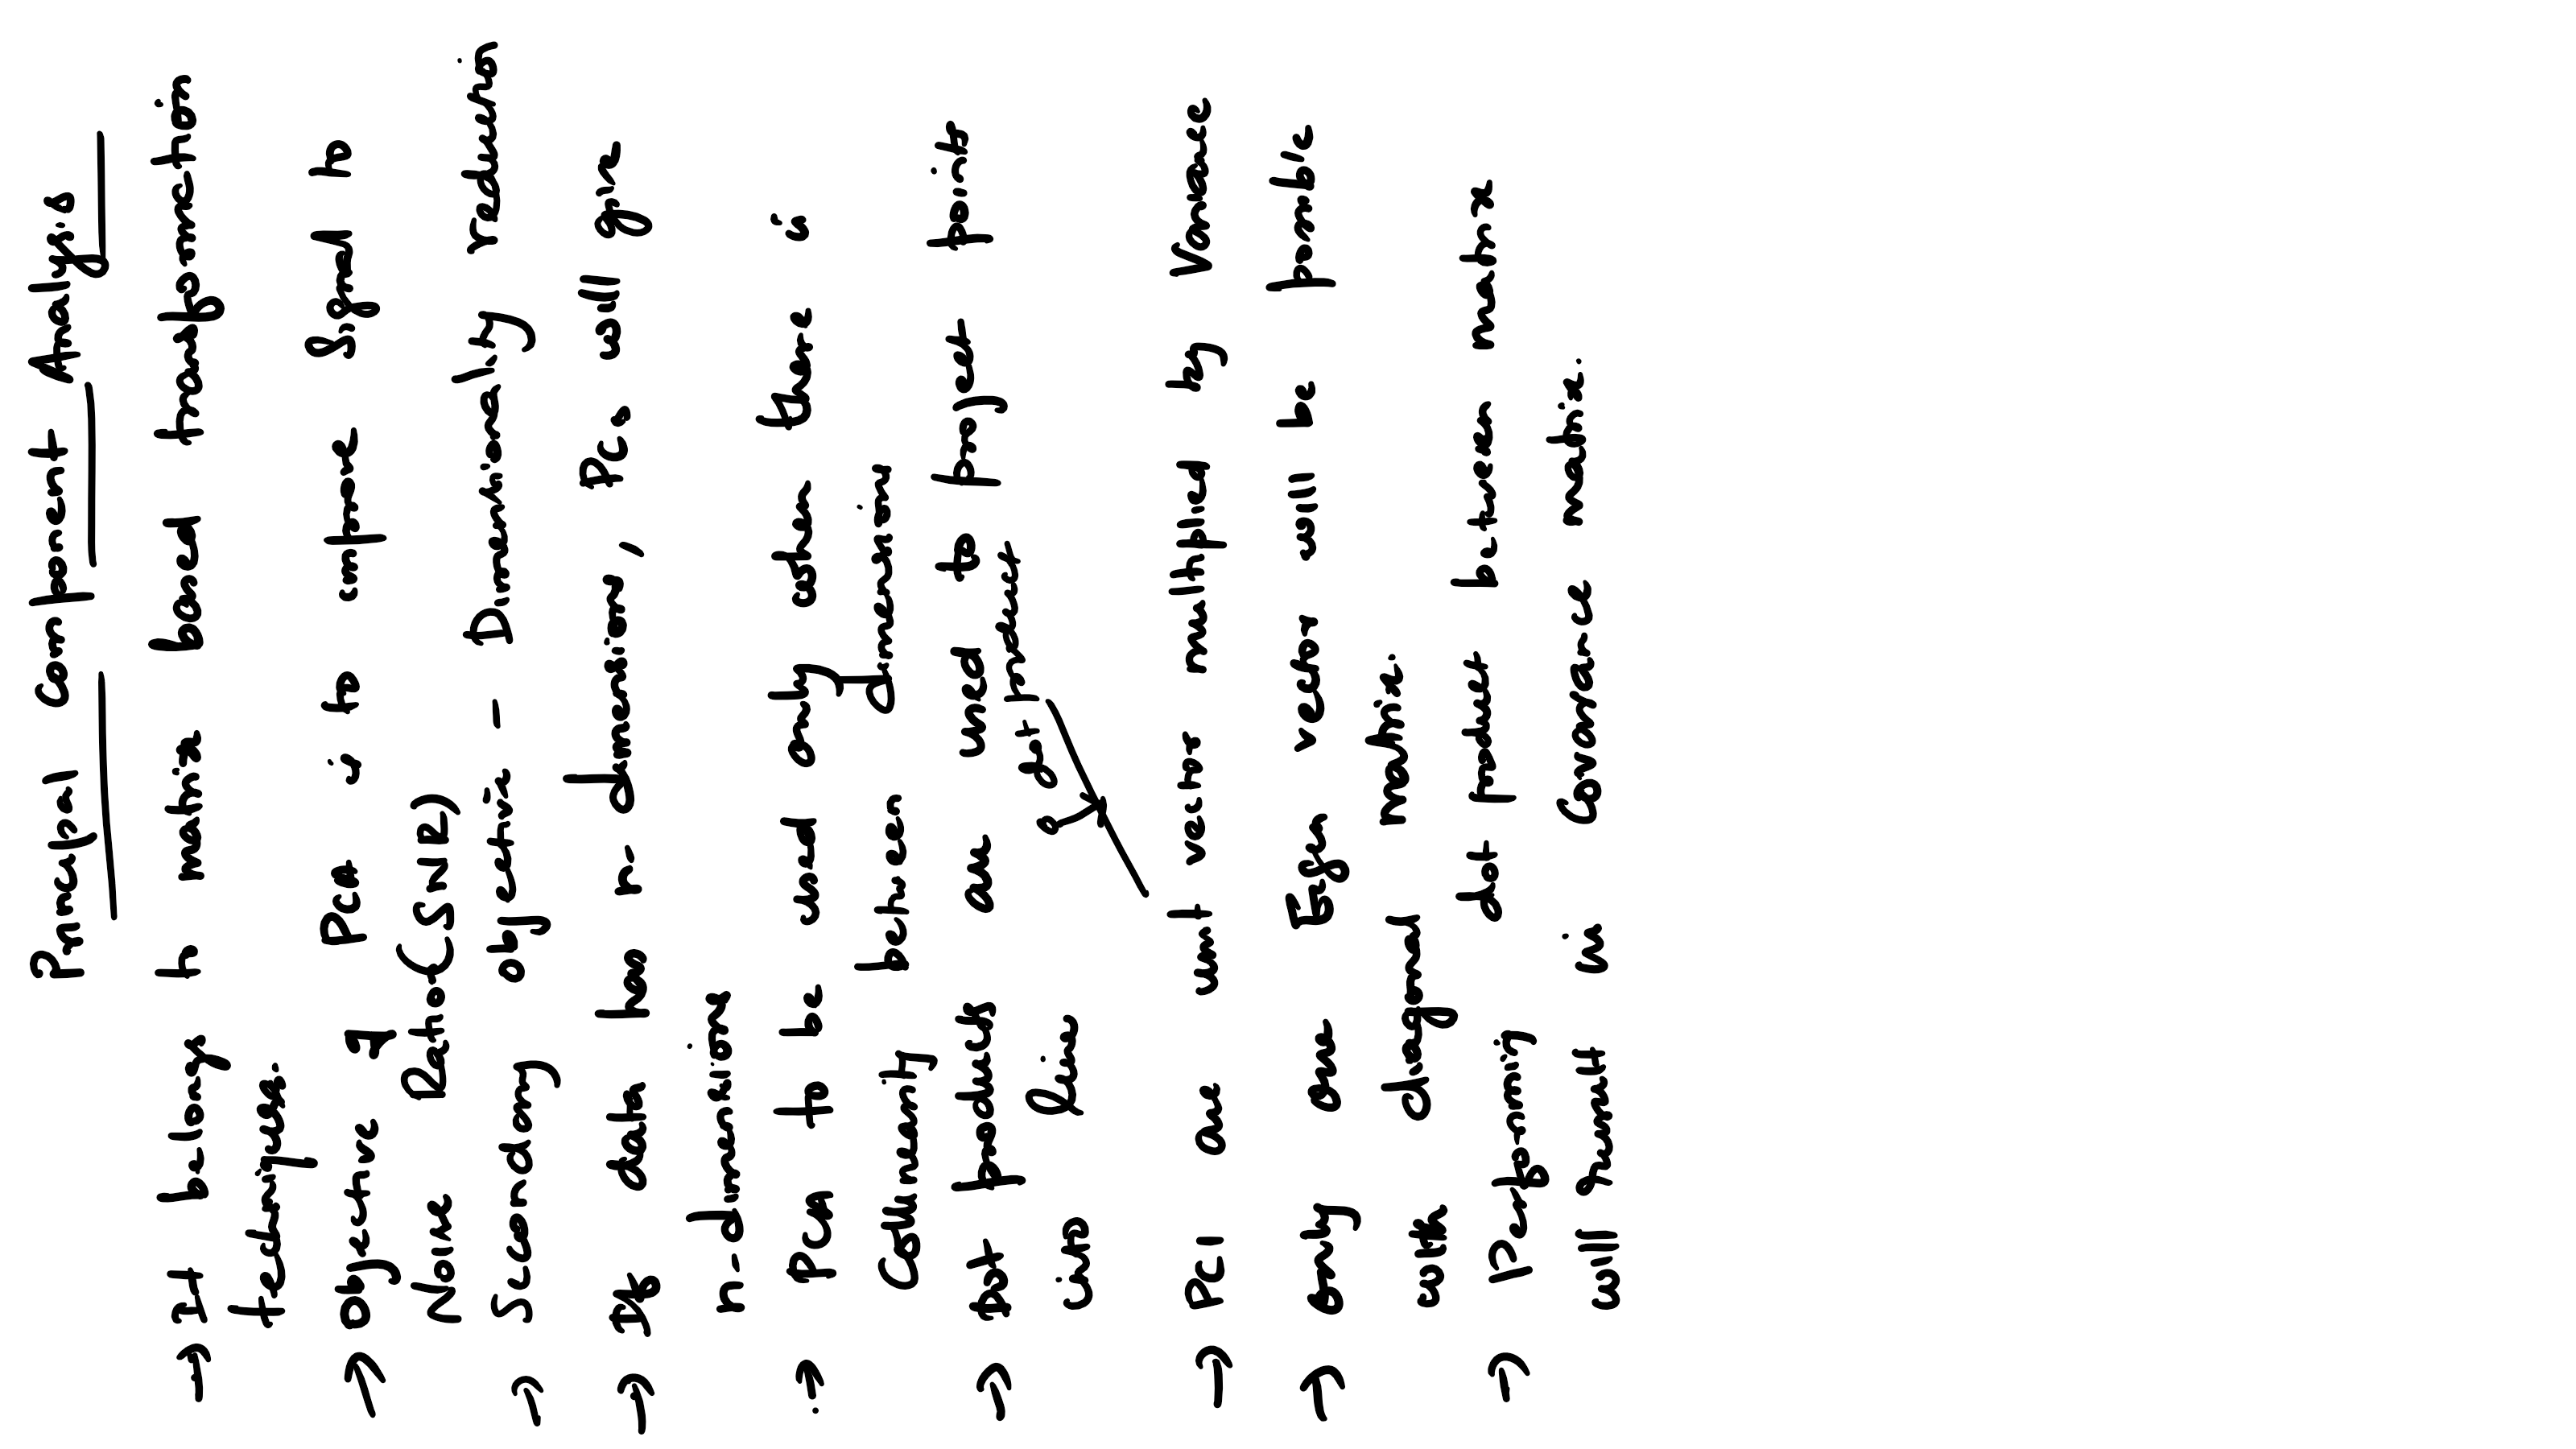 Principal Component Analysis
→ It belongs to matrix based transformation
techniques.
→ Objective of PCA is to improve Signal to
Noise Ratio (SNR)
→ Secondary objective - Dimensionality reduction
→ If data has n-dimensions, PCs will give
n-dimensions
→ PCA to be used only when there is
Collinearity between dimensions
→ Dot products are used to project points
into line
dot product
→ PC1 are unit vector multiplied by Variance
→ Only one Eigen vector will be possible
with diagonal matrix.
→ Performing dot product between matrix
will result in Covariance matrix.